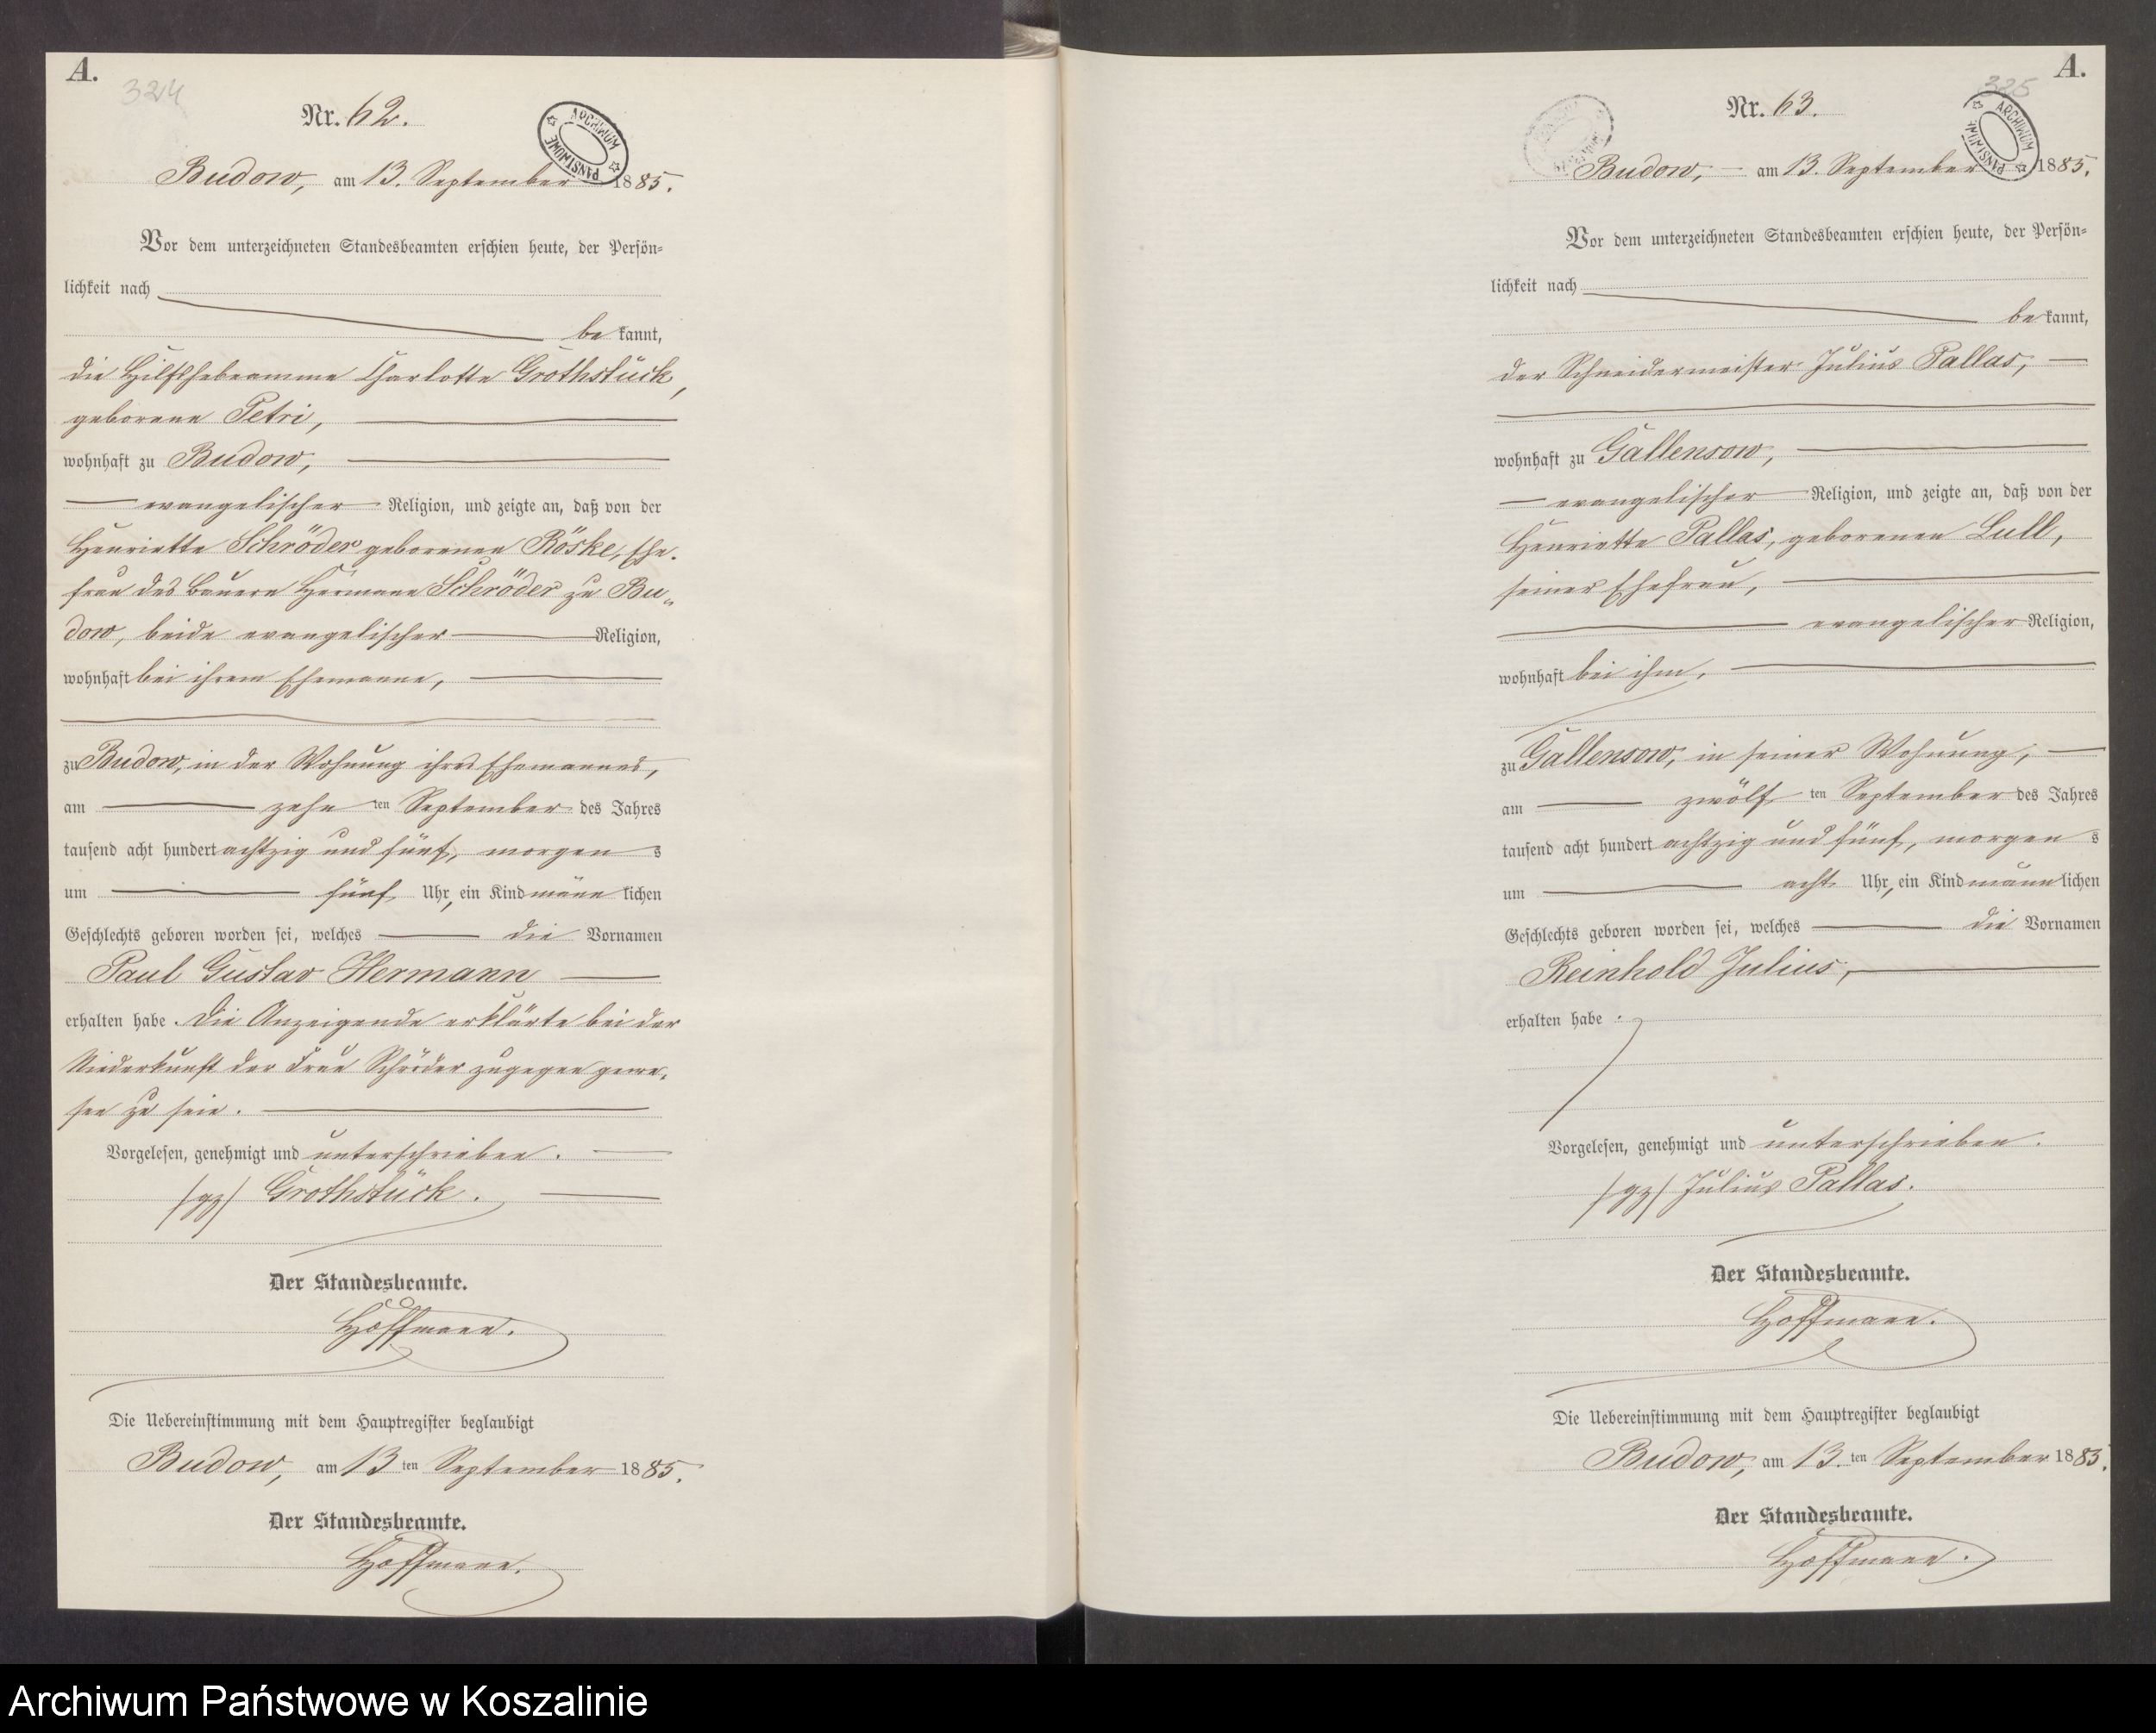 A.
324
Nr. 62.
ARCHIWUM PAŃSTWOWE
Budow, am 13. September 1885.
Vor dem unterzeichneten Standesbeamten erschien heute, der Persön=
lichkeit nach
be kannt,
die Hilfshebeamme Charlotte Grothstück,
geborene Petri,
wohnhaft zu Budow,
evangelischer Religion, und zeigte an, daß von der
Henriette Schröder geborenen Röske, Ehe-
frau des Bauern Hermann Schröder zu Bu-
dow, beide evangelischer Religion,
wohnhaft bei ihrem Ehemanne,
zu Budow, in der Wohnung ihres Ehemannes,
am zehn ten September des Jahres
tausend acht hundert achtzig und fünf, morgen s
um fünf Uhr, ein Kind männ lichen
Geschlechts geboren worden sei, welches die Vornamen
Paul Gustav Hermann
erhalten habe. Die Anzeigende erklärte bei der
Niederkunft der Frau Schröder zugegen gewe-
sen zu sein.
Vorgelesen, genehmigt und unterschrieben.
/gz/ Grothstück.
Der Standesbeamte.
Hoffmann.
Die Uebereinstimmung mit dem Hauptregister beglaubigt
Budow, am 13 ten September 1885.
Der Standesbeamte.
Hoffmann.
A.
325
Nr. 63.
ARCHIWUM PAŃSTWOWE
Budow, am 13. September 1885.
Vor dem unterzeichneten Standesbeamten erschien heute, der Persön=
lichkeit nach
be kannt,
der Schneidermeister Julius Pallas,
wohnhaft zu Gallensow,
evangelischer Religion, und zeigte an, daß von der
Henriette Pallas, geborenen Lull,
seiner Ehefrau,
evangelischer Religion,
wohnhaft bei ihm,
zu Gallensow, in seiner Wohnung,
am zwölf ten September des Jahres
tausend acht hundert achtzig und fünf, morgen s
um acht Uhr, ein Kind männ lichen
Geschlechts geboren worden sei, welches die Vornamen
Reinhold Julius,
erhalten habe.
Vorgelesen, genehmigt und unterschrieben.
/gz/ Julius Pallas.
Der Standesbeamte.
Hoffmann.
Die Uebereinstimmung mit dem Hauptregister beglaubigt
Budow, am 13. ten September 1885.
Der Standesbeamte.
Hoffmann.
Archiwum Państwowe w Koszalinie